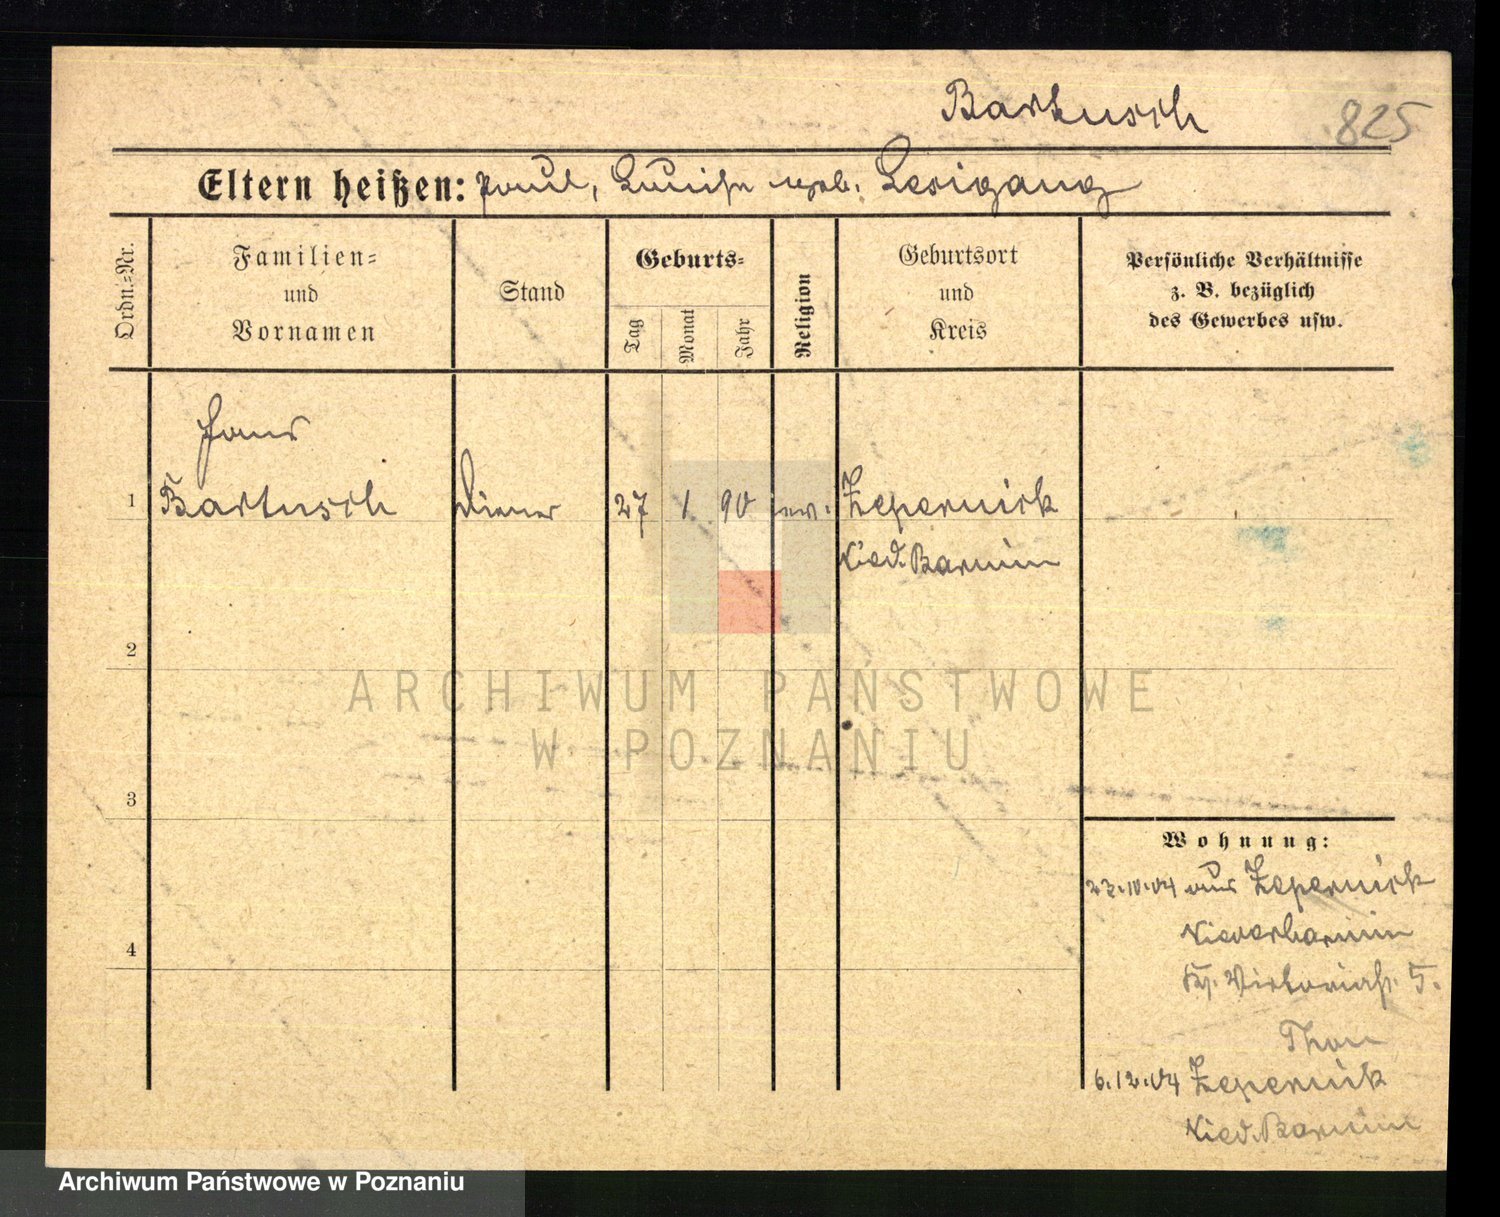 Bartusch 825
Eltern heißen: Paul, Luise geb. Lesigang
Ordn.=Nr.
Familien=
und
Vornamen
Stand
Geburts=
Tag
Monat
Jahr
Religion
Geburtsort
und
Kreis
Persönliche Verhältnisse
z. B. bezüglich
des Gewerbes usw.
Hans
1 Bartusch Diener 27 1 90 ev. Zepernick
Nied. Barnim
2
3
4
Wohnung:
22.10.04 aus Zepernick
Niederbarnim
Viktoriastr. 5.
Thon
6.12.04 Zepernick
Nied. Barnim
ARCHIWUM PAŃSTWOWE
W POZNANIU
Archiwum Państwowe w Poznaniu